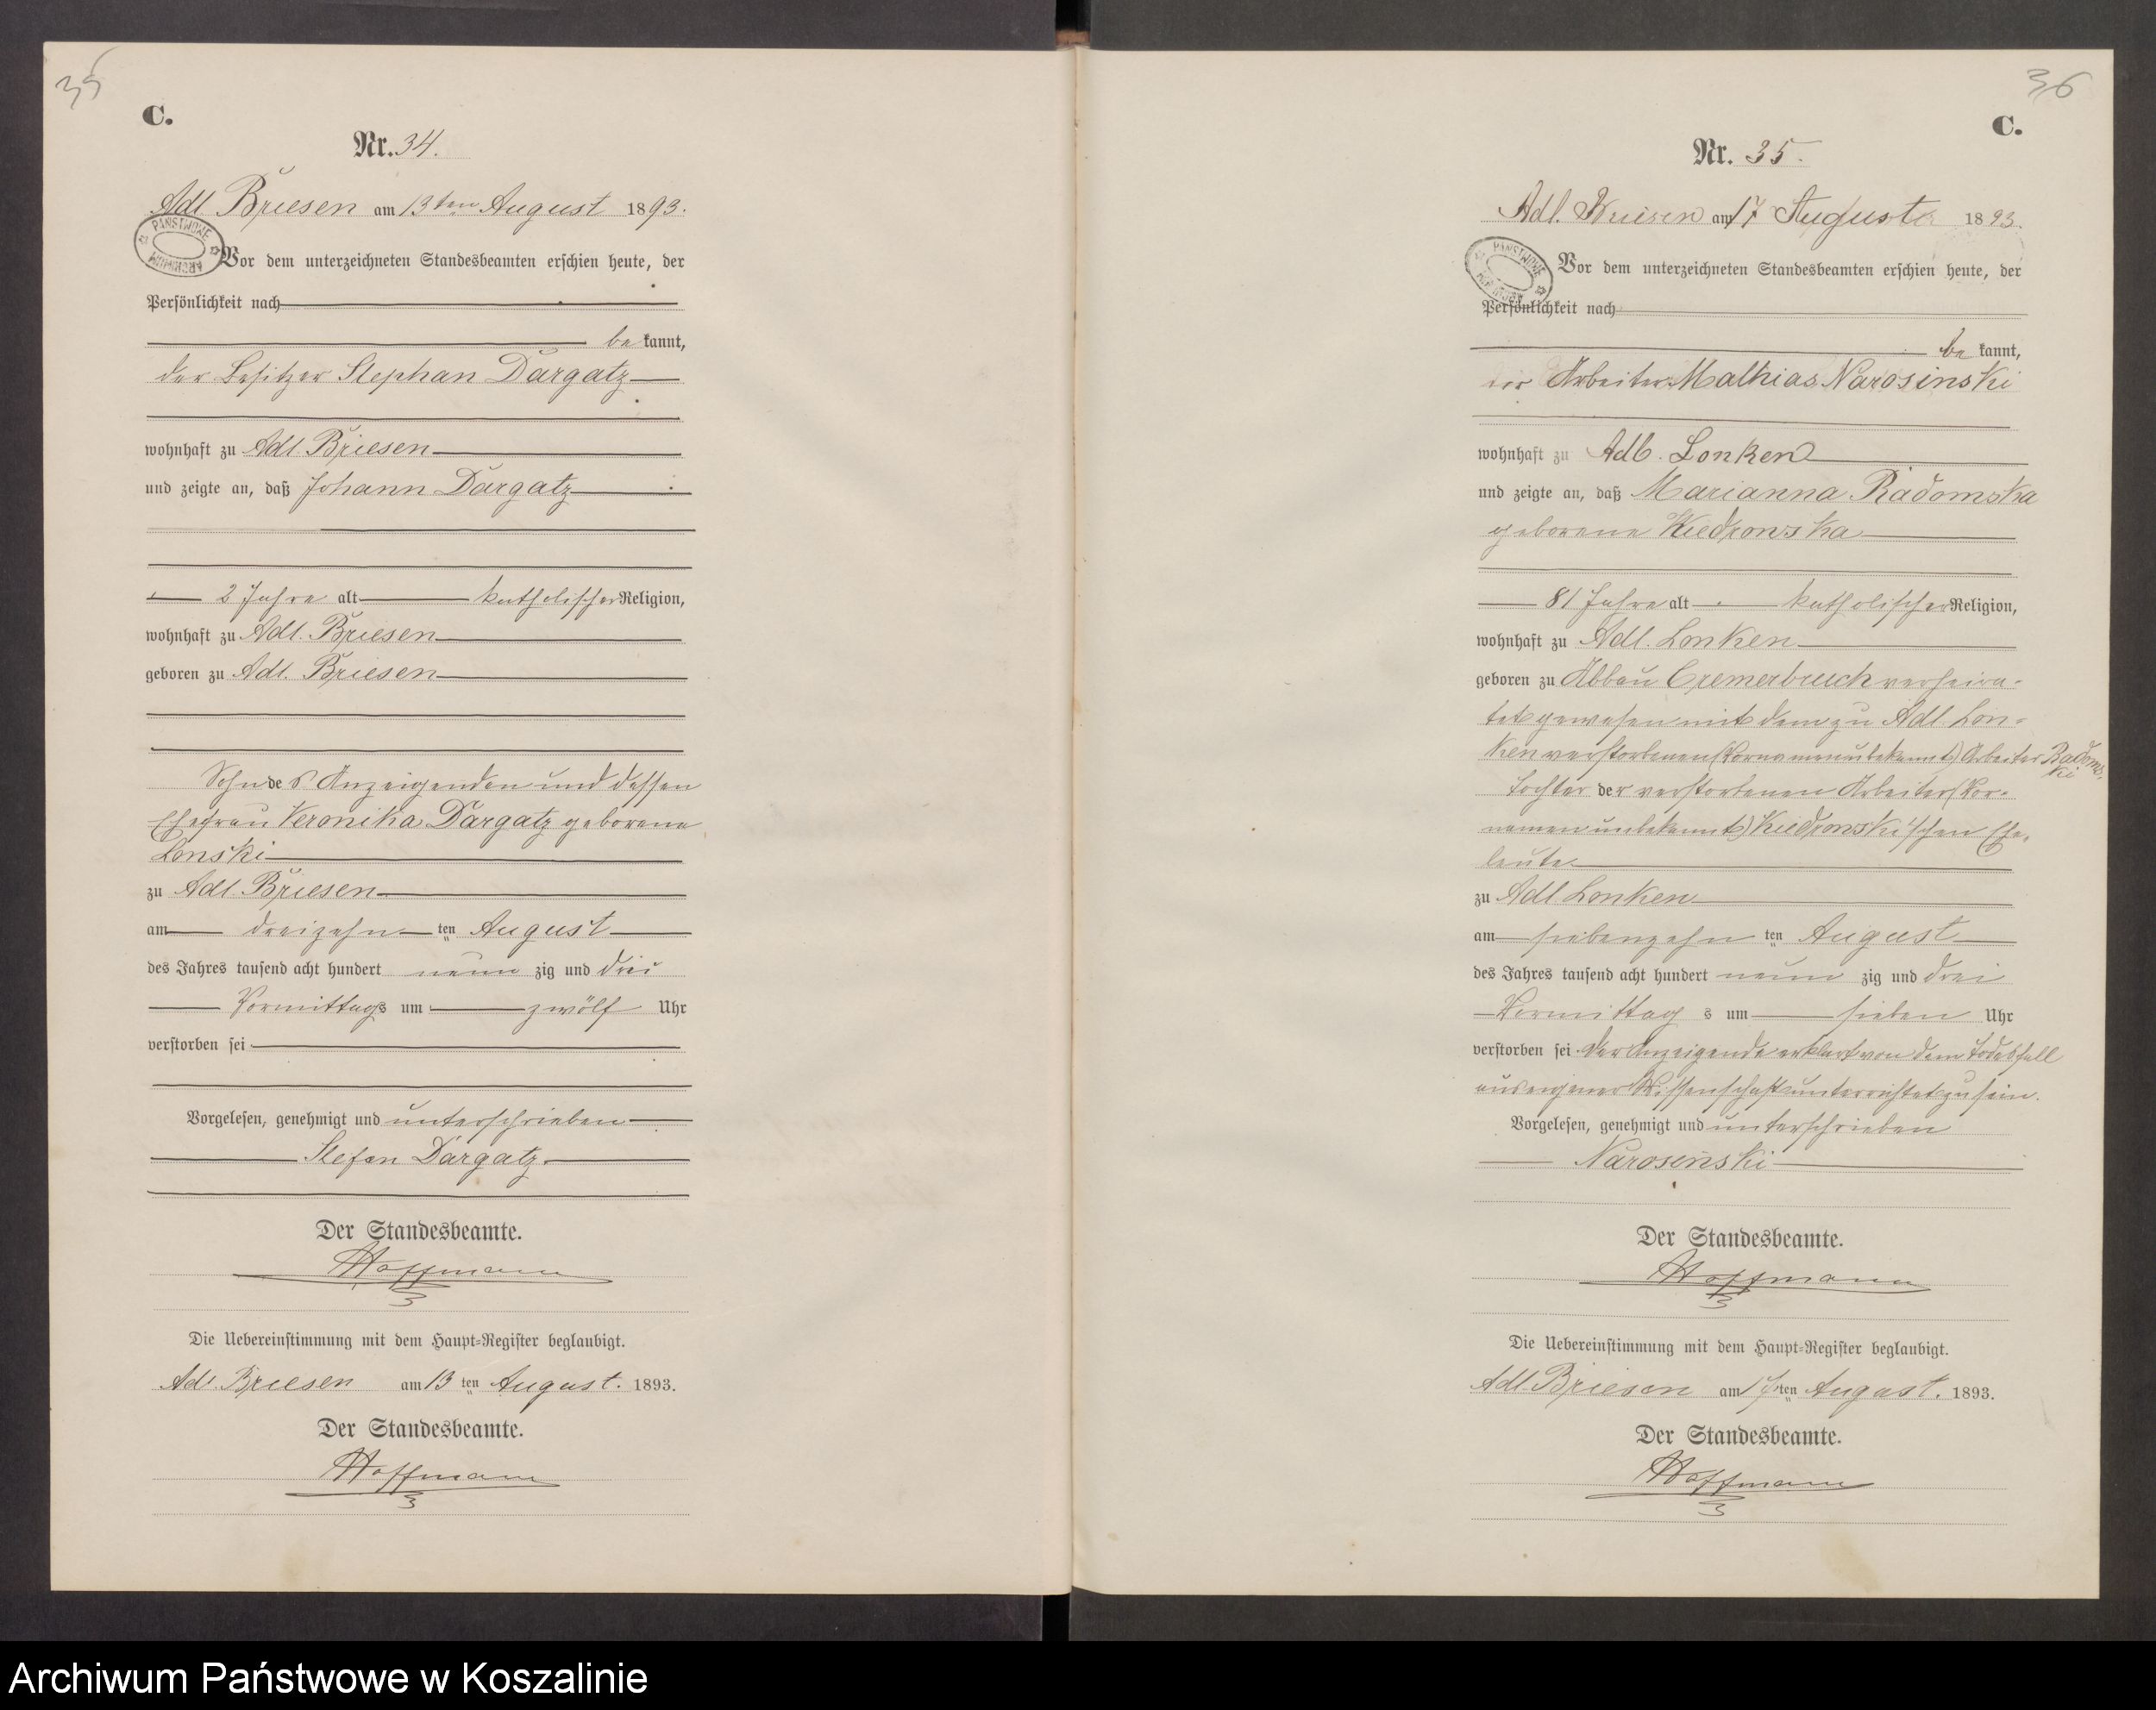 35
C.
Nr. 34.
Adl. Briesen am 13ten August 1893.
PAŃSTWOWE ARCHIWUM
Vor dem unterzeichneten Standesbeamten erschien heute, der
Persönlichkeit nach
be kannt,
der Besitzer Stephan Dargatz
wohnhaft zu Adl. Briesen
und zeigte an, daß Johann Dargatz
2 Jahre alt katholischer Religion,
wohnhaft zu Adl. Briesen
geboren zu Adl. Briesen
Sohn des Anzeigenden und dessen
Ehefrau Veronika Dargatz geborene
Lonski
zu Adl. Briesen
am dreizehn ten August
des Jahres tausend acht hundert neun zig und drei
Vormittags um zwölf Uhr
verstorben sei
Vorgelesen, genehmigt und unterschrieben
Stefan Dargatz.
Der Standesbeamte.
Hoffmann
Die Uebereinstimmung mit dem Haupt-Register beglaubigt.
Adl. Briesen am 13 ten August. 1893.
Der Standesbeamte.
Hoffmann
36
C.
Nr. 35.
Adl. Briesen am 17 August 1893.
PAŃSTWOWE ARCHIWUM
Vor dem unterzeichneten Standesbeamten erschien heute, der
Persönlichkeit nach
be kannt,
der Arbeiter Mathias Narosinski
wohnhaft zu Adl. Lonken
und zeigte an, daß Marianna Radomska
geborene Kiedrowska
81 Jahre alt katholischer Religion,
wohnhaft zu Adl. Lonken
geboren zu Abbau Cremerbruch verheira-
tet gewesen mit dem zu Adl. Lon-
ken verstorbenen (Vornamen unbekannt) Arbeiter Radoms-
ki
Tochter der verstorbenen Arbeiter (Vor-
namen unbekannt) Kiedrowski'schen Ehe-
leute
zu Adl. Lonken
am siebenzehn ten August
des Jahres tausend acht hundert neun zig und drei
Vormittag s um sieben Uhr
verstorben sei. Der Anzeigende erklärt von dem Todesfall
aus eigener Wissenschaft unterrichtet zu sein.
Vorgelesen, genehmigt und unterschrieben
Narosinski
Der Standesbeamte.
Hoffmann
Die Uebereinstimmung mit dem Haupt-Register beglaubigt.
Adl. Briesen am 17 ten August. 1893.
Der Standesbeamte.
Hoffmann
Archiwum Państwowe w Koszalinie